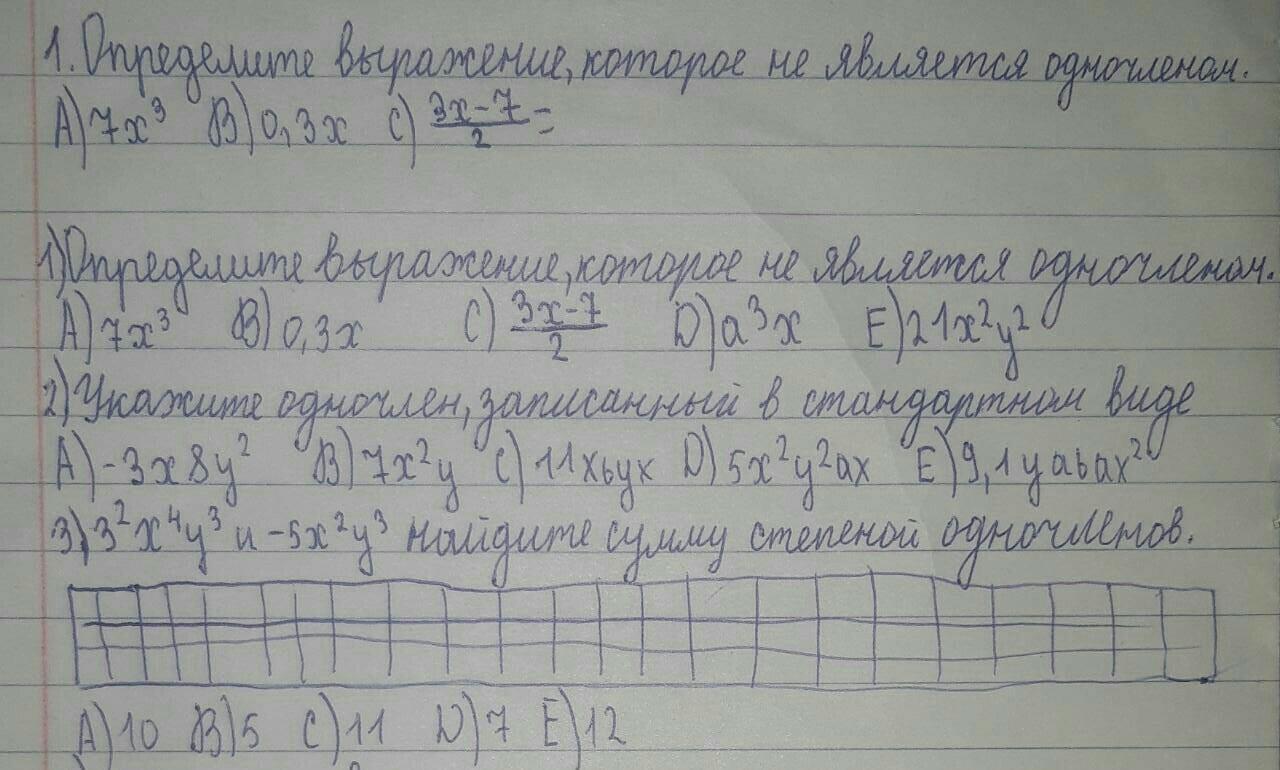 1. Определите выражение, которое не является одночленом.
A) 7x³ B) 0,3x C) (3x-7)/2 =
1) Определите выражение, которое не является одночленом.
A) 7x³ B) 0,3x C) (3x-7)/2 D) a³x E) 21x²y²
2) Укажите одночлен, записанный в стандартном виде
A) -3x8y² B) 7x²y C) 11xbyx D) 5x²y²ax E) 9,1yabax²
3) 3²x⁴y³ и -5x²y³ найдите сумму степеной одночленов.
A) 10 B) 5 C) 11 D) 7 E) 12